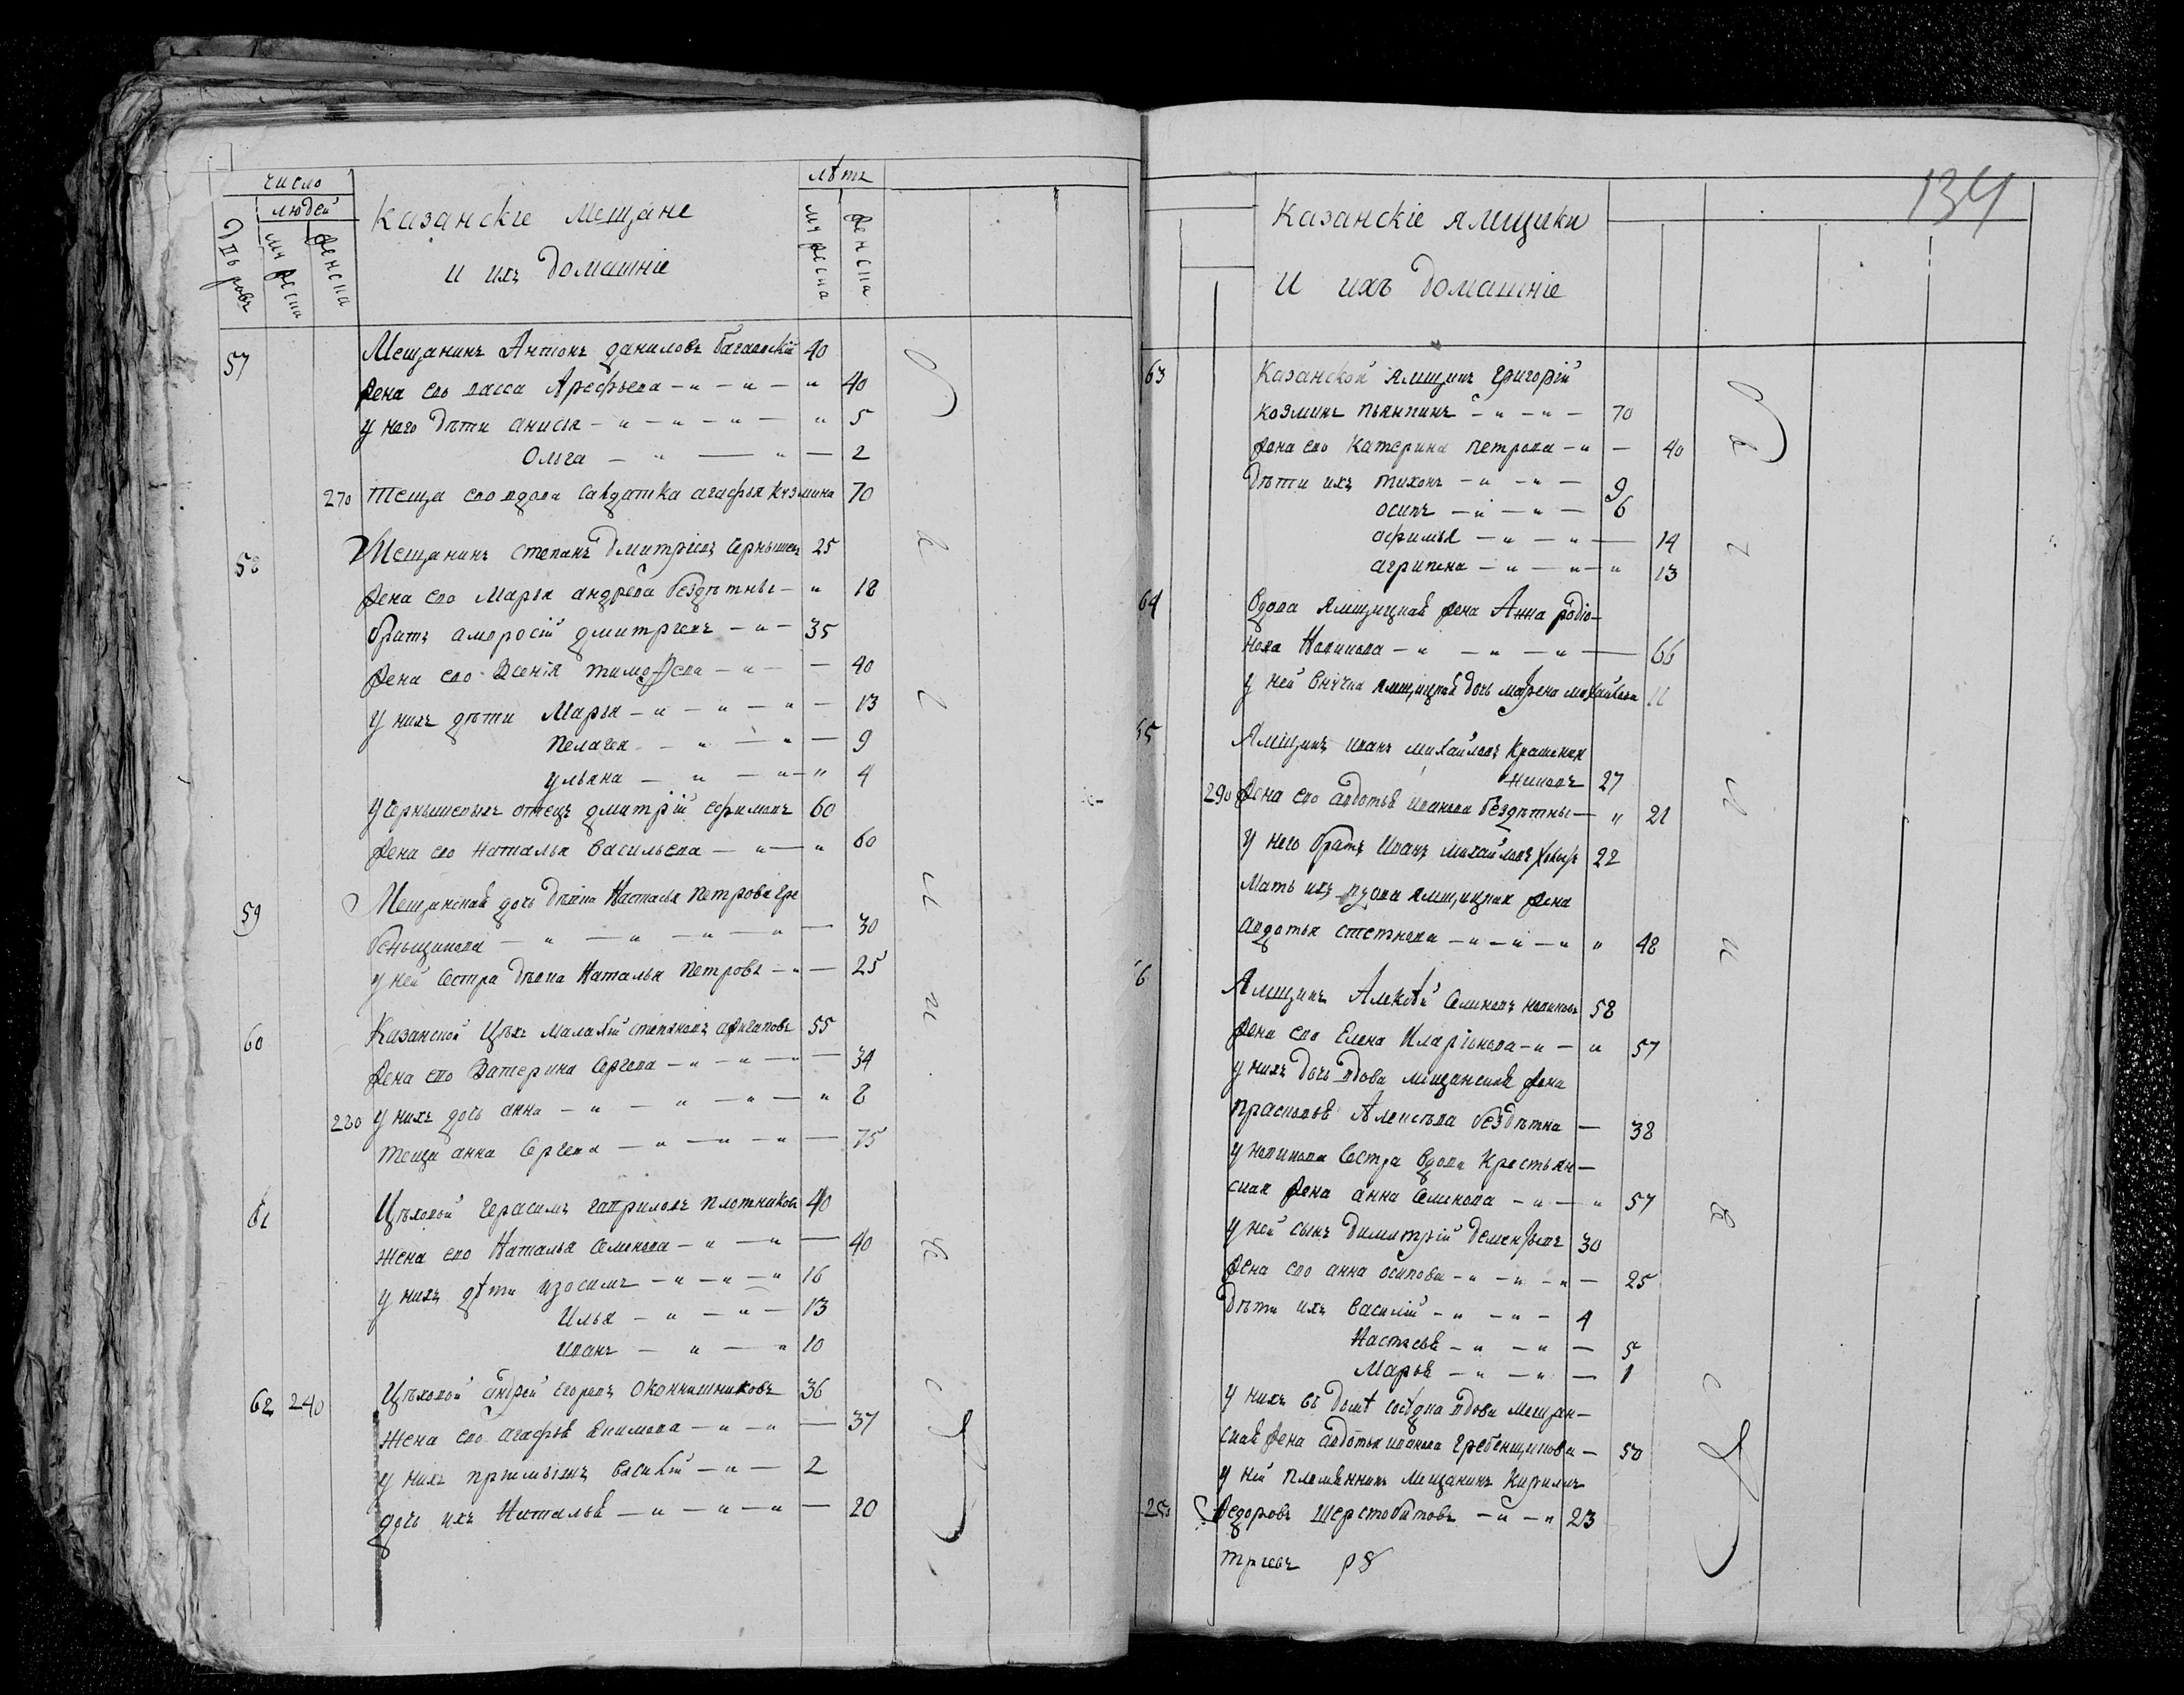 число
людей
дворовъ
мужеска
женска
Казанскіе Мещане
и ихъ домашніе
лѣтъ
мужеска
женска
57 Мещанинъ Антонъ Даниловъ 40
жена ево Васса Арефьева — " — " — " 40
у него дѣти Анисья — " — " — " — " 5
Ольга — " — " — 2
270 теща ево вдова салдатка Агафья Козмина 70
58 Мещанинъ Степанъ Дмитріевъ Чернышевъ 25
жена ево Марья Андреева бездѣтны — " 18
братъ Амвросій Дмитріевъ — " — 35
жена ево Ксенія Тимофеева — " — — 40
у нихъ дѣти Марья — " — " — " — 13
Пелагея — " — " — 9
Ульяна — " — " — " 4
у Чернышевыхъ отецъ Дмитрій Ефимовъ 60
жена ево Наталья Васильева — " — " 60
59 Мещанская дочь дѣвка Настасья Петрова Гре
бенщикова — " — " — " — " — 30
у ней сестра дѣвка Наталья Петрова — " — 25
60 Казанской цѣхъ Малафій Степановъ 55
жена ево Катерина Сергева — " — " — " — 34
280 у нихъ дочь Анна — " — " — " — " 8
теща Анна Сергева — " — " — " — 75
61 Цѣховой Герасимъ Гавриловъ Плотниковъ 40
жена ево Наталья Семенова — " — " — 40
у нихъ дѣти Изосимъ — " — " — " 16
Илья — " — " — 13
Иванъ — " — " 10
62 240 Цѣховой Андрей Егоровъ Оконнишниковъ 36
жена ево Агафья Екимова — " — " — 37
у нихъ пріемышъ Василій — " — 2
дочь ихъ Наталья — " — " — " — 20
134
Казанскіе ямщики
и ихъ домашніе
63 Казанской ямщикъ Григорій
Козминъ — " — " — 70
жена ево Катерина Петрова — " — 40
Дѣти ихъ Тихонъ — " — " — 9
Осипъ — " — " — 6
Афимья — " — " — 14
Агрипена — " — " — " 13
64 Вдова ямщицкая жена Анна Родіо-
нова Новикова — " — " — " — 66
у ней внучка ямщицкая дочь Мавра Михайлова 11
65 Ямщикъ Иванъ Михайловъ Крашенин
никовъ 27
290 жена ево Авдотья Иванова бездѣтны — " 21
у него братъ Иванъ Михайловъ 22
Мать ихъ вдова ямщицкая жена
Авдотья — " — " — " " 48
66 Ямщикъ Алексѣй Семеновъ Новиковъ 58
жена ево Елена Иларіонова — " — " 57
у нихъ дочь вдова мещанская жена
Прасковья Алексѣева бездѣтна — 38
у Новикова сестра вдова крестьян-
ская жена Анна Семенова — " — " 57
у ней сынъ Димитрій Дементьевъ 30
жена ево Анна Осипова — " — " — " — 25
Дѣти ихъ Василій — " — " — 4
Настасья — " — " — 5
Марья — " — " — 1
у нихъ въ домѣ сосѣдка вдова мещан-
ская жена Авдотья Иванова Гребенщикова — 50
у ней племянникъ мещанинъ Кирилъ
250 Федоровъ Шерстобитовъ — " — " 23